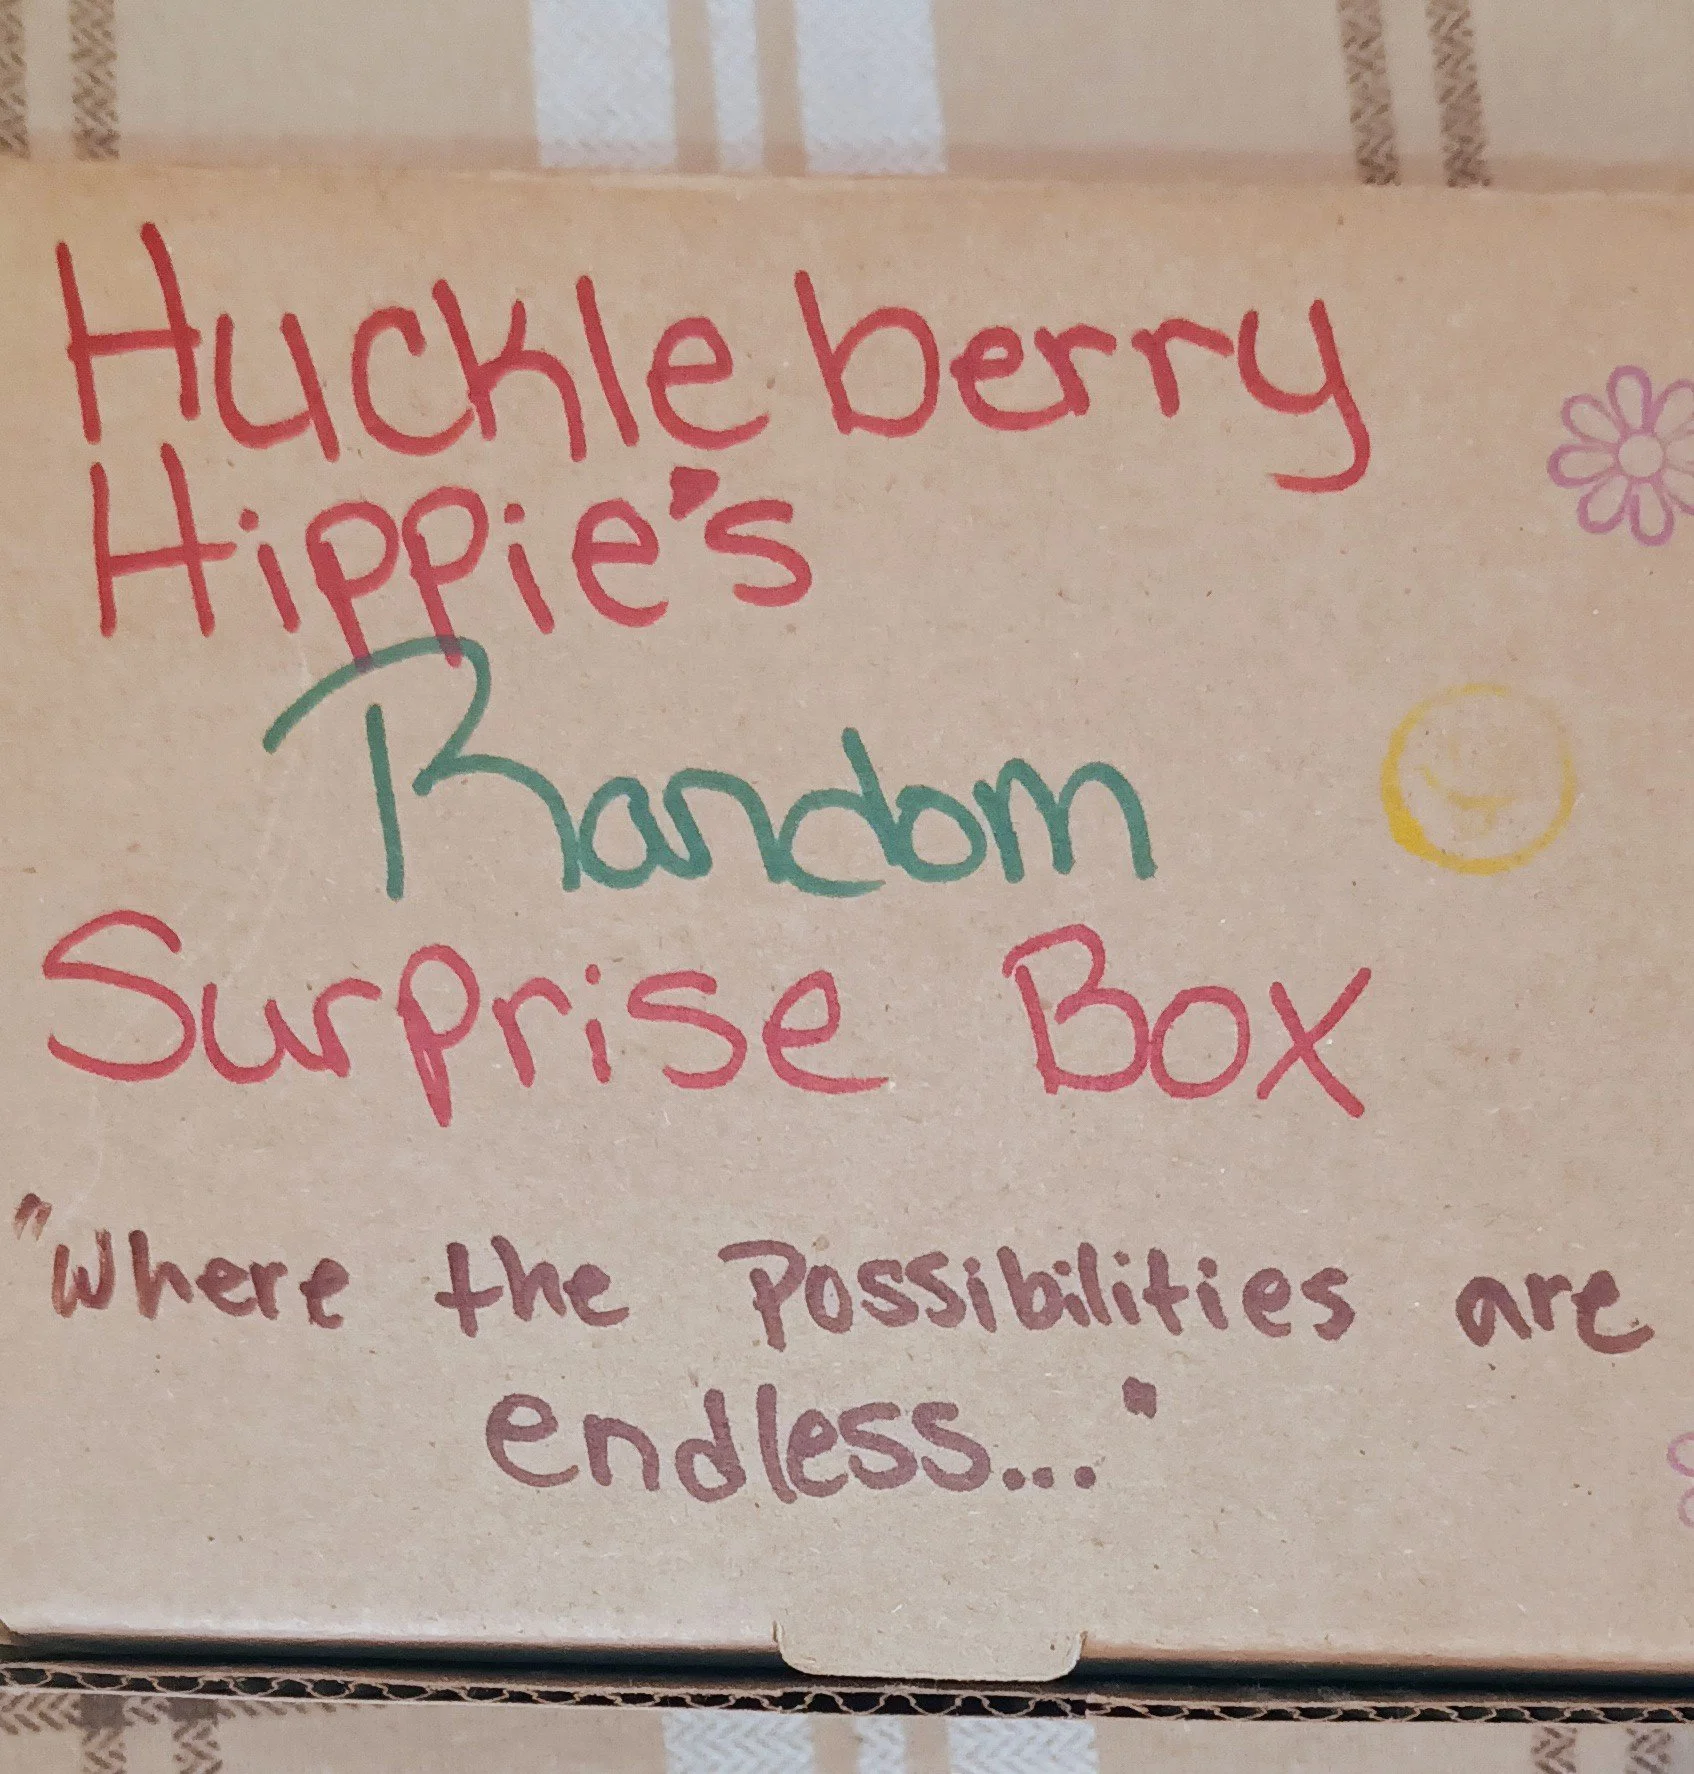 Huckleberry
Hippie's
Random
Surprise Box
"Where the Possibilities are
endless..."